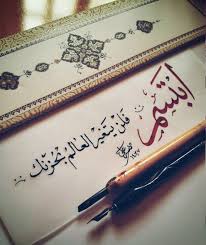 ابتسم
فلن يتغير العالم بحزنك